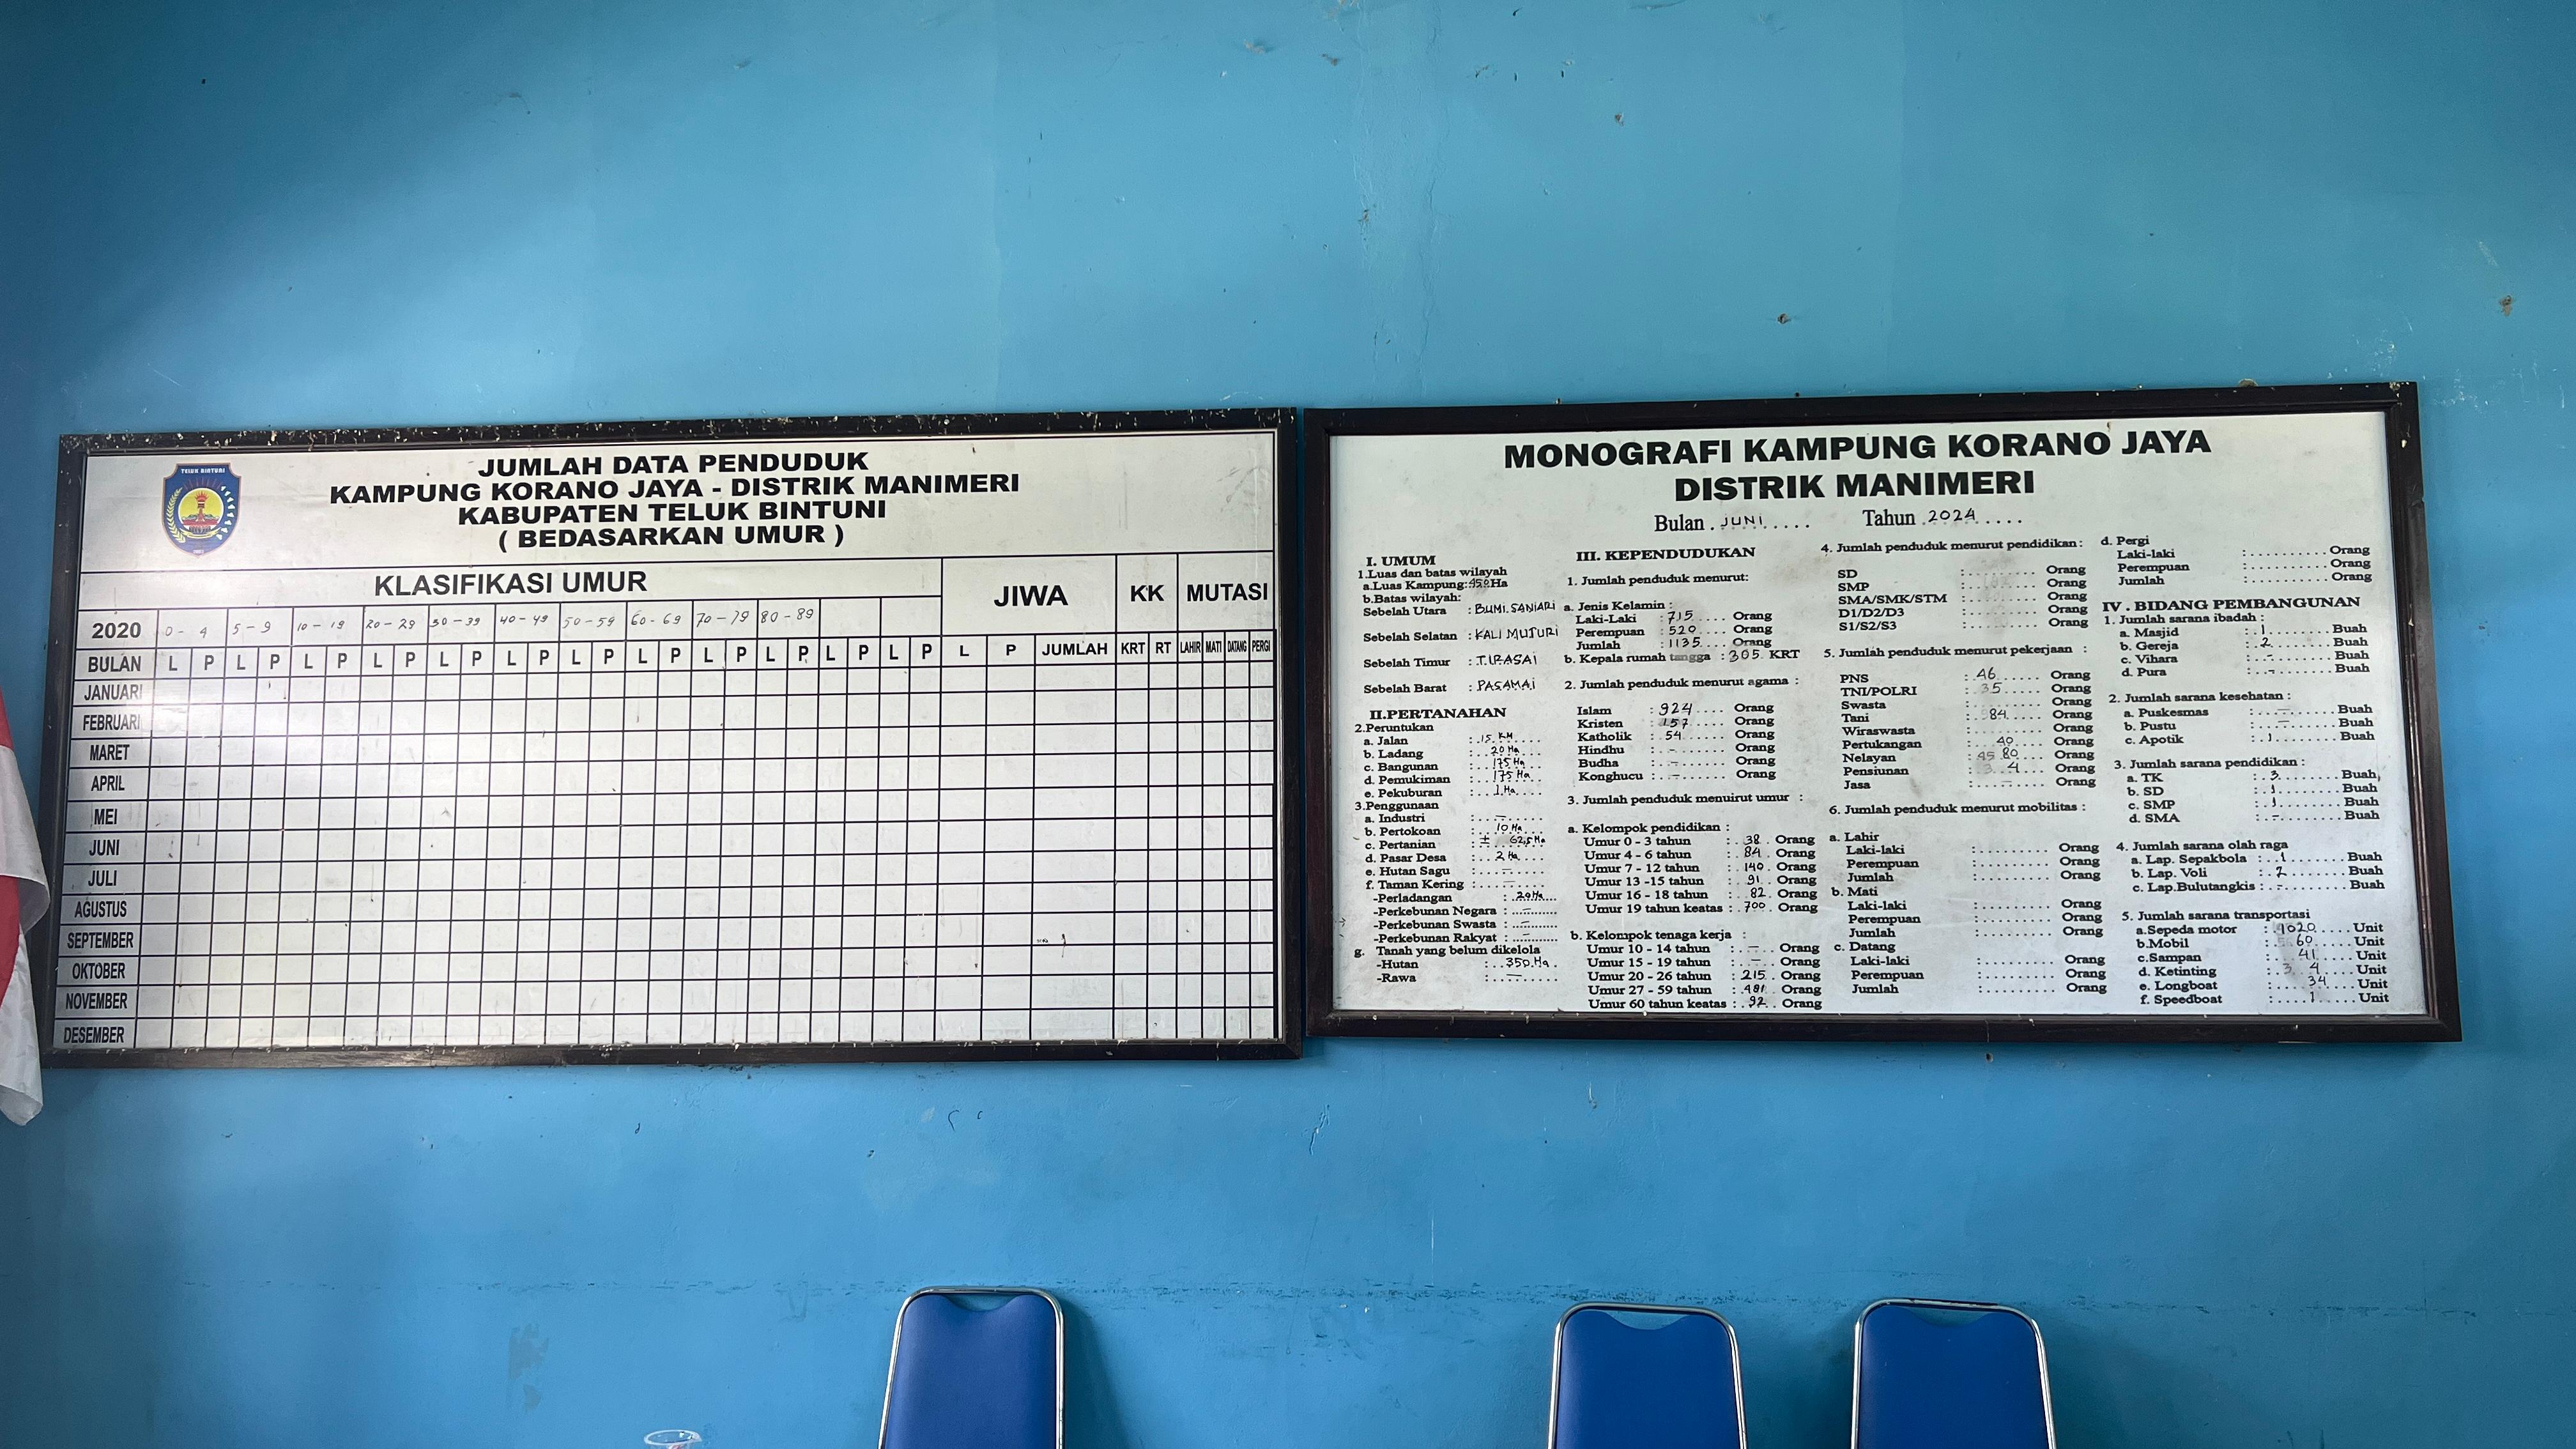 TELUK BINTUNI
JUMLAH DATA PENDUDUK
KAMPUNG KORANO JAYA - DISTRIK MANIMERI
KABUPATEN TELUK BINTUNI
( BEDASARKAN UMUR )
KLASIFIKASI UMUR JIWA KK MUTASI
2020 0 - 4 5 - 9 10 - 19 20 - 29 30 - 39 40 - 49 50 - 59 60 - 69 70 - 79 80 - 89
BULAN L P L P L P L P L P L P L P L P L P L P L P L P L P JUMLAH KRT RT LAHIR MATI DATANG PERGI
JANUARI
FEBRUARI
MARET
APRIL
MEI
JUNI
JULI
AGUSTUS
SEPTEMBER
OKTOBER
NOVEMBER
DESEMBER
MONOGRAFI KAMPUNG KORANO JAYA
DISTRIK MANIMERI
Bulan . JUNI ..... Tahun .2024 ....
I. UMUM
1.Luas dan batas wilayah
a.Luas Kampung: Ha
b.Batas wilayah:
Sebelah Utara : BUMI. SANIARI
Sebelah Selatan : KALI MUTURI
Sebelah Timur : TIRASAI
Sebelah Barat : PASAMAI
II.PERTANAHAN
2.Peruntukan
a. Jalan : 15 KM
b. Ladang : 20 Ha
c. Bangunan : 175 Ha
d. Pemukiman : 175 Ha
e. Pekuburan : 1 Ha
3.Penggunaan
a. Industri : -
b. Pertokoan : 10 Ha
c. Pertanian : ± 62,5 Ha
d. Pasar Desa : 2 Ha
e. Hutan Sagu : -
f. Taman Kering :
-Perladangan : 20 Ha
-Perkebunan Negara : -
-Perkebunan Swasta : -
-Perkebunan Rakyat : -
g. Tanah yang belum dikelola
-Hutan : 350 Ha
-Rawa : -
III. KEPENDUDUKAN
1. Jumlah penduduk menurut:
a. Jenis Kelamin :
Laki-Laki : 715 Orang
Perempuan : 520 Orang
Jumlah : 1135 Orang
b. Kepala rumah tangga : 305 KRT
2. Jumlah penduduk menurut agama :
Islam : 924 Orang
Kristen : 157 Orang
Katholik : 54 Orang
Hindhu : - Orang
Budha : - Orang
Konghucu : - Orang
3. Jumlah penduduk menuirut umur :
a. Kelompok pendidikan :
Umur 0 - 3 tahun : 38 Orang
Umur 4 - 6 tahun : 84 Orang
Umur 7 - 12 tahun : 140 Orang
Umur 13 -15 tahun : 91 Orang
Umur 16 - 18 tahun : 82 Orang
Umur 19 tahun keatas : 700 Orang
b. Kelompok tenaga kerja :
Umur 10 - 14 tahun : - Orang
Umur 15 - 19 tahun : - Orang
Umur 20 - 26 tahun : 215 Orang
Umur 27 - 59 tahun : 481 Orang
Umur 60 tahun keatas : 92 Orang
4. Jumlah penduduk menurut pendidikan :
SD : Orang
SMP : Orang
SMA/SMK/STM : Orang
D1/D2/D3 : Orang
S1/S2/S3 : Orang
5. Jumlah penduduk menurut pekerjaan :
PNS : 46 Orang
TNI/POLRI : 35 Orang
Swasta : Orang
Tani : 84 Orang
Wiraswasta : Orang
Pertukangan : 40 Orang
Nelayan : 80 Orang
Pensiunan : 4 Orang
Jasa : Orang
6. Jumlah penduduk menurut mobilitas :
a. Lahir
Laki-laki : Orang
Perempuan : Orang
Jumlah : Orang
b. Mati
Laki-laki : Orang
Perempuan : Orang
Jumlah : Orang
c. Datang
Laki-laki : Orang
Perempuan : Orang
Jumlah : Orang
d. Pergi
Laki-laki : Orang
Perempuan : Orang
Jumlah : Orang
IV . BIDANG PEMBANGUNAN
1. Jumlah sarana ibadah :
a. Masjid : 1 Buah
b. Gereja : 2 Buah
c. Vihara : - Buah
d. Pura : - Buah
2. Jumlah sarana kesehatan :
a. Puskesmas : - Buah
b. Pustu : - Buah
c. Apotik : 1 Buah
3. Jumlah sarana pendidikan :
a. TK : 3 Buah
b. SD : 1 Buah
c. SMP : 1 Buah
d. SMA : - Buah
4. Jumlah sarana olah raga
a. Lap. Sepakbola : 1 Buah
b. Lap. Voli : 2 Buah
c. Lap.Bulutangkis : - Buah
5. Jumlah sarana transportasi
a.Sepeda motor : 1020 Unit
b.Mobil : 60 Unit
c.Sampan : 41 Unit
d. Ketinting : 4 Unit
e. Longboat : 34 Unit
f. Speedboat : 1 Unit